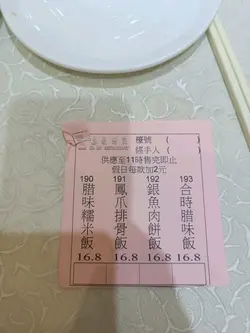 檯號 (　　)
經手人 (　　)
供應至11時售完即止
假日每款加2元
190
腊味糯米飯
16.8
191
鳳爪排骨飯
16.8
192
銀魚肉餅飯
16.8
193
合時腊味飯
16.8